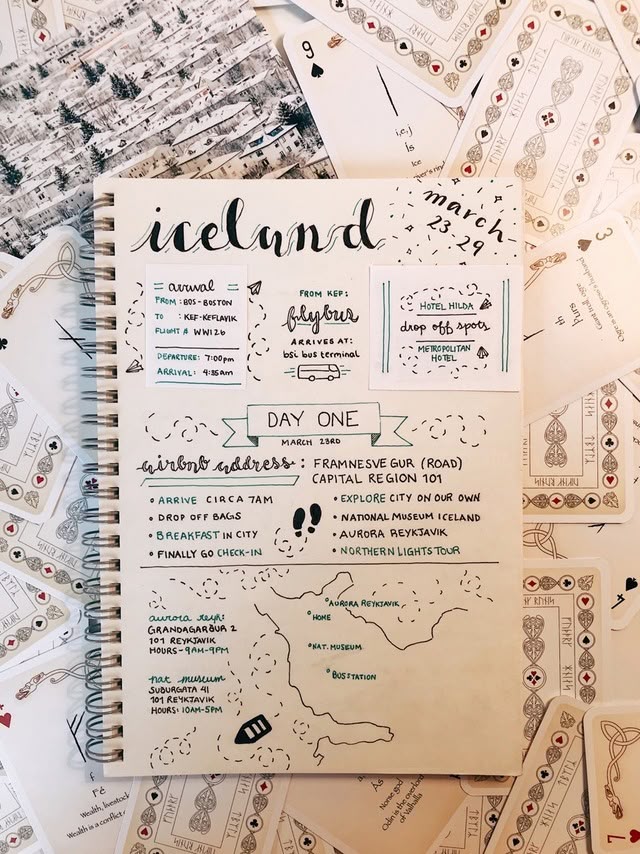 iceland
march
23-29
arrival
FROM: BOS-BOSTON
TO: KEF-KEFLAVIK
FLIGHT # WW126
DEPARTURE: 7:00pm
ARRIVAL: 4:35am
FROM KEF:
flybus
ARRIVES AT:
bsi bus terminal
HOTEL HILDA
drop off spots
METROPOLITAN
HOTEL
DAY ONE
MARCH 23RD
airbnb address: FRAMNESVEGUR (ROAD)
CAPITAL REGION 101
• ARRIVE CIRCA 7AM
• DROP OFF BAGS
• BREAKFAST IN CITY
• FINALLY GO CHECK-IN
• EXPLORE CITY ON OUR OWN
• NATIONAL MUSEUM ICELAND
• AURORA REYKJAVIK
• NORTHERN LIGHTS TOUR
aurora reyk:
GRANDAGARÐUR 2
101 REYKJAVIK
HOURS-9AM-9PM
nat museum
SUBURGATA 41
101 REYKJAVIK
HOURS: 10AM-5PM
AURORA REYKJAVIK
HOME
NAT. MUSEUM
BUS STATION
9
Is
Ice
3
Þurs
Fé
Wealth, livestock
Wealth is a
Ás
Norse god
Odin is the overlord
of Valhalla
7